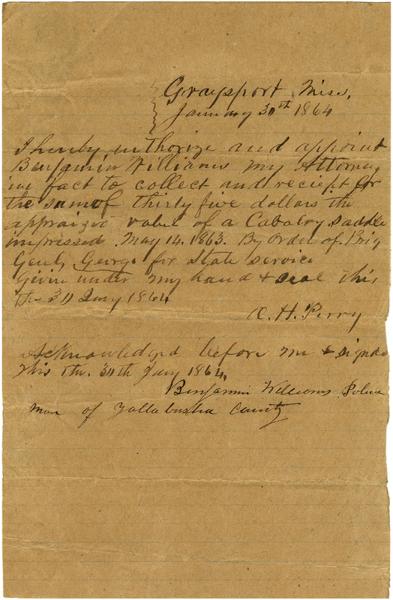 Graysport, Miss,
January 30th 1864
I hereby authorize and appoint
Benjamin Williams my Attorney
in fact to collect and reciept for
the sum of thirty five dollars the
appraized value of a Cabalry Saddle
impressed May 14, 1863. By Order of Brig
Genl, George for State Service
Givin under my hand & seal this
the 30 Jany 1864
C. H. Perry
Acknowledged before me & signed
this the. 30th Jany 1864,
Benjamin Williams Police
man of Yallabusha County